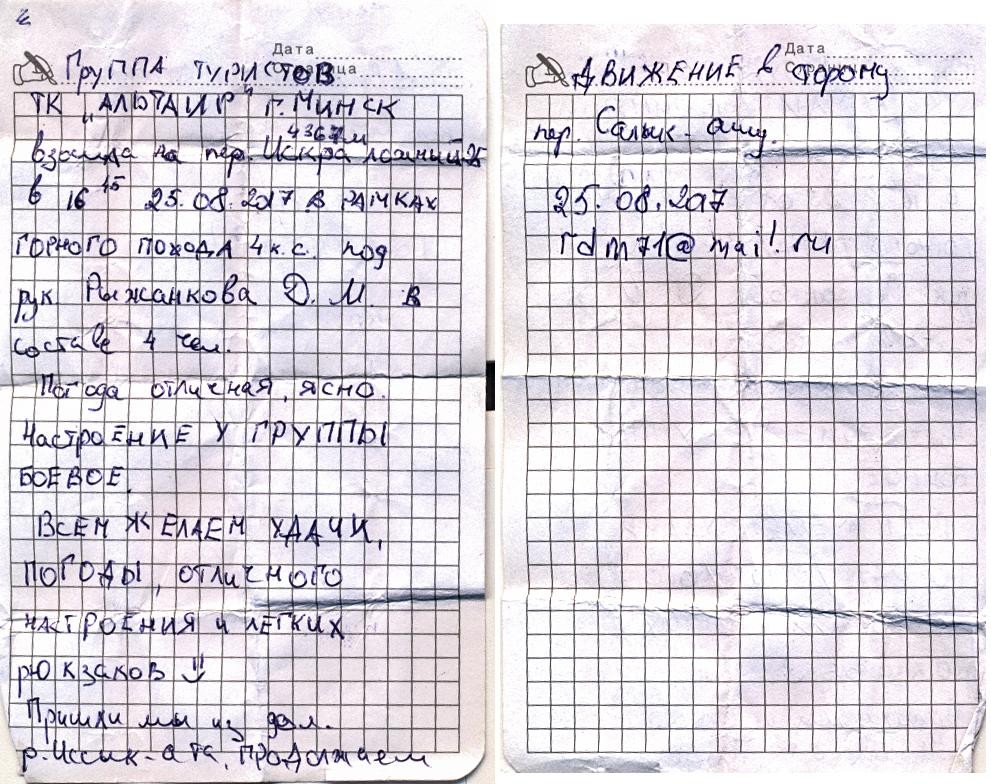 Дата
Страница
Группа туристов
ТК "Альтаир" г. Минск
4367м
взошла на пер. Искра ложный 2Б
в 16 45 25.08.2017 в рамках
горного похода 4 к.с. под
рук. Рыжанкова Д. М. в
составе 4 чел.
Погода отличная, ясно.
Настроение у группы
боевое.
Всем желаем удачи,
погоды, отличного
настроения и легких
рюкзаков !!
Пришли мы из дол.
р. Иссык-ата, продолжаем
Дата
Страница
движение в сторону
пер. Салык-ашу.
25.08.2017
rdm71@mail.ru